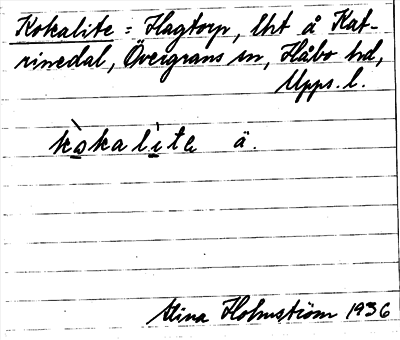 Kokalite = Hagtorp, lht å Kat-
rinedal, Övergrans sn, Håbo hd,
Upps. l.
kòkalìte ä.
Stina Holmström 1936